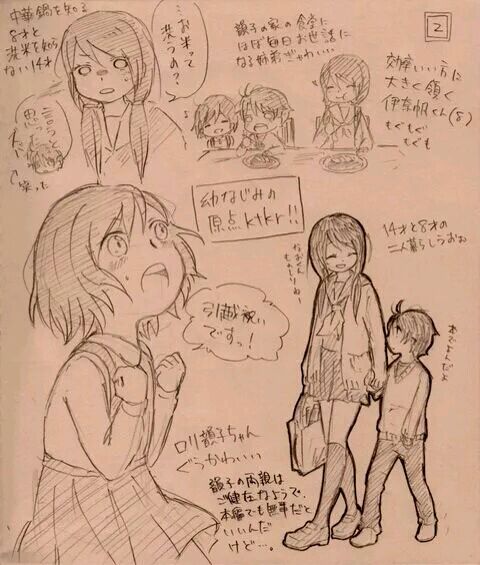 2
中華鍋を知る
8才と
洗米を知ら
ない14才
…お米って
洗うの?
言うと
思った
↑笑った
韻子の家の食堂に
ほぼ毎日お世話に
なる姉弟ぎゃわいい
効率いい方に
大きく頷く
伊奈帆くん(8)
もぐもぐ
もぐも
幼なじみの
原点ktkr!!
14才と8才の
二人暮らしうおお
引越祝い
ですっ!
ロリ韻子ちゃん
ぐうかわいい
韻子の両親は
ご健在なようで、
本編でも無事だと
いいんだ
けど…。